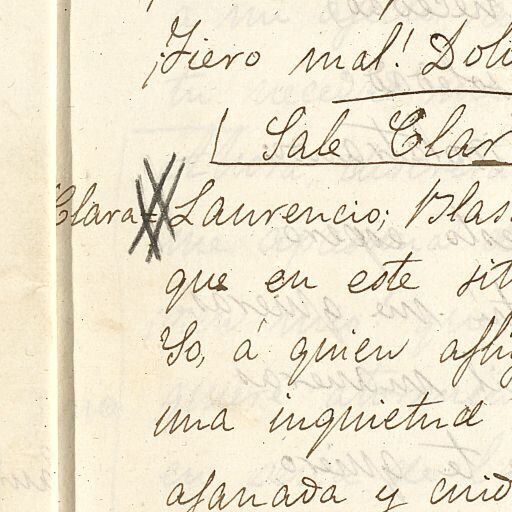 ¡Fiero mal! Dolo
Sale Clar
Clara = Laurencio; Blas
que en este sit
Yo, á quien aflig
una inquietud
afanada y cuid